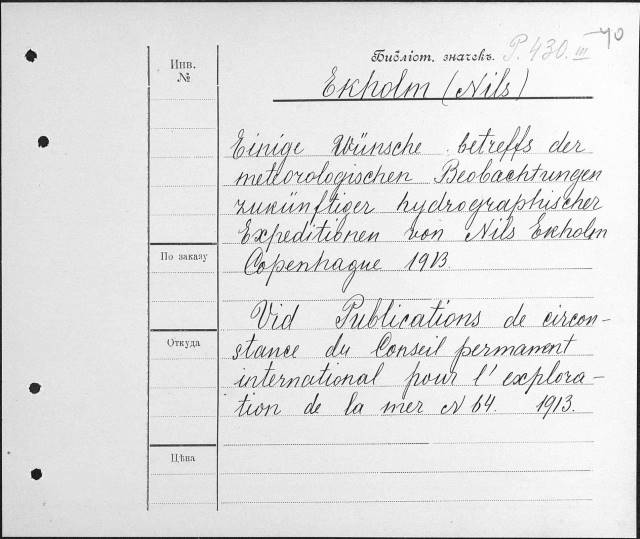 Инв.
№
Библіот. значекъ. P. 430. III — 40
Ekholm (Nils)
Einige Wünsche betreffs der
meteorologischen Beobachtungen
zukünftiger hydrographischer
Expeditionen von Nils Ekholm
Copenhague 1913.
По заказу
Vid Publications de circon-
Откуда
stance du Conseil permanent
international pour l'explora-
tion de la mer N 64. 1913.
Цѣна